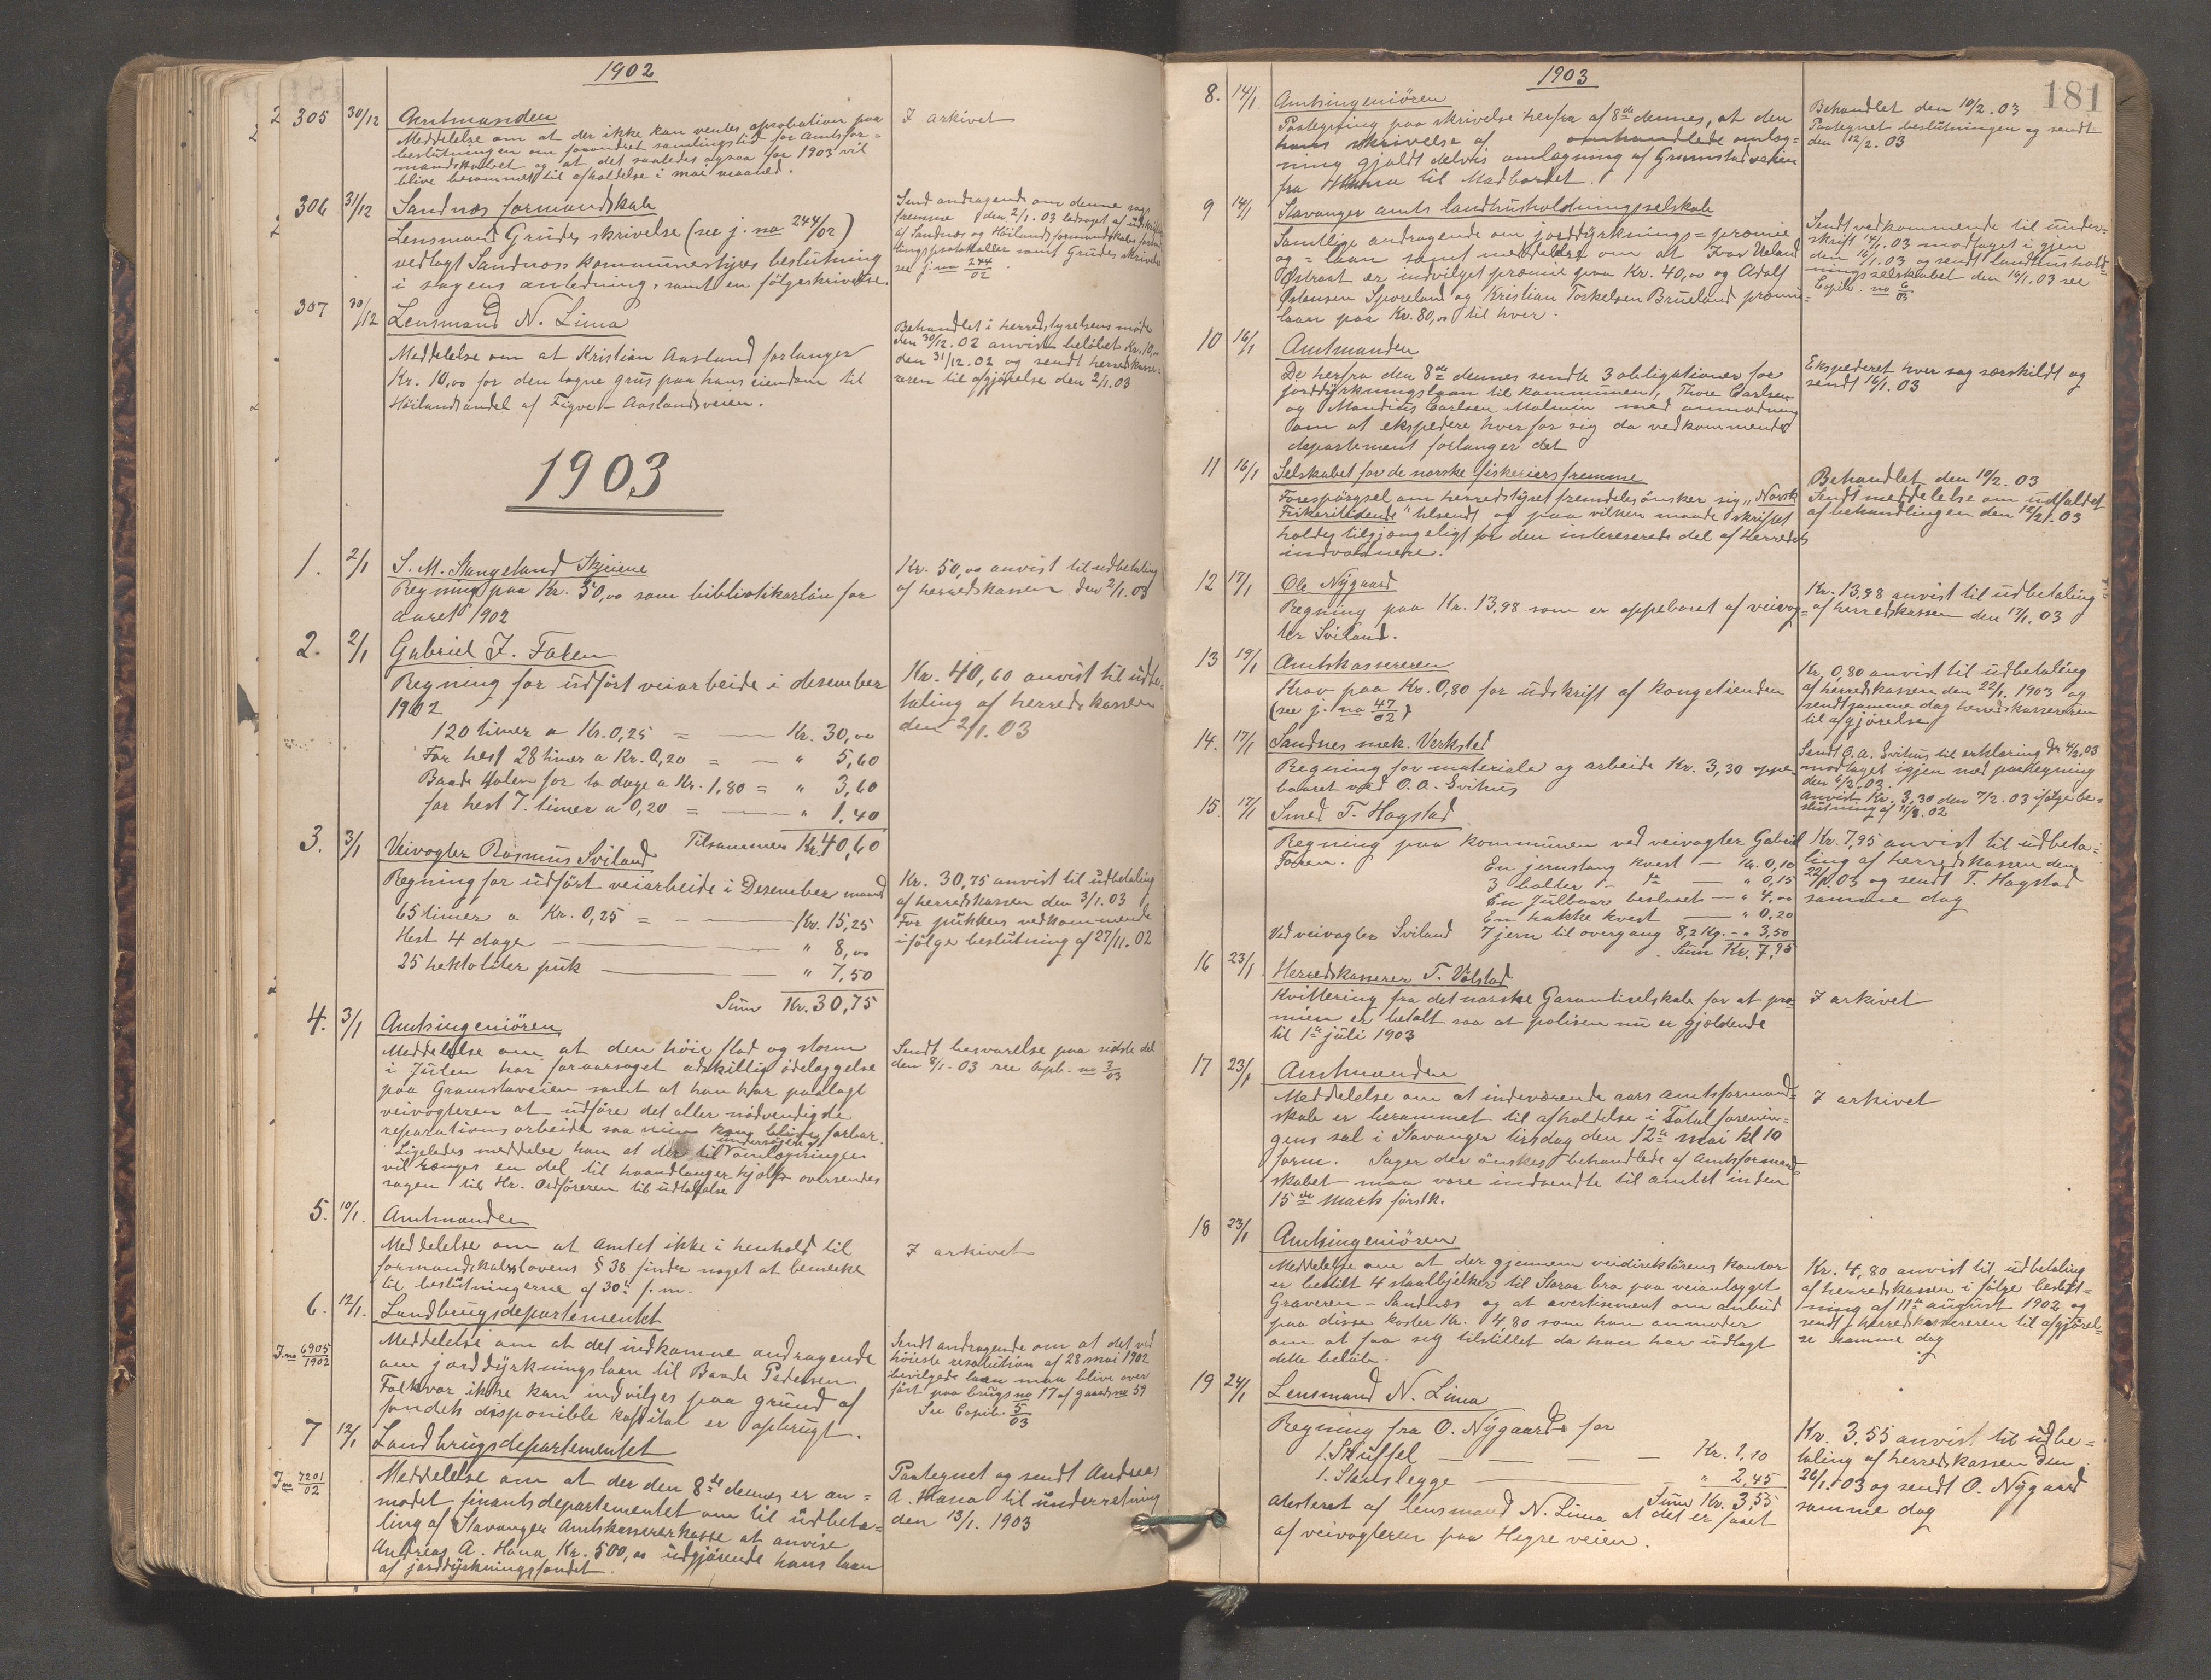 1902
305 30/12 Amtmanden
Meddelelse om at der ikke kan ventes aprobation paa
beslutningen om forandret samlingstid for Amtsfor=
mandskabet og at det saaledes ogsaa for 1903 vil
blive berammet til afholdelse i mai maaned.
I arkivet
306 31/12 Sandnæs formandskab
Lensmand Grudes skrivelse (see j. no 244/02)
vedlagt Sandnæs kommunestyres beslutning
i sagens anledning, samt en følgeskrivelse.
Send andragende om denne sags
fremme den 2/1. 03 ledsaget af udskrifter
af Sandnæs og Höilands formandskabs forhand
lingsprotokoller samt Grudes skrivelse
see j. no 244/02.
307 30/12 Lensmand N. Lima
Meddelelse om at Kristian Ausland forlanger
Kr. 10,00 for den tagne grus paa hans eiendom til
Höilands andel af Figve - Auslandsveien.
Behandlet i herredstyrelsens møde
den 30/12. 02 anvist beløbet Kr. 10,00
den 31/12. 02 og sendt herredskasse=
reren til afgjørelse den 2/1. 03
1903
1. 2/1 S. M. Stangeland Skjeiene
Regning paa Kr. 50,00 som bibliotikarløn for
aaret 1902
Kr. 50,00 anvist til udbetaling
af herredskassen den 2/1. 03
2. 2/1 Gabriel I. Foten
Regning for udført veiarbeide i desember
1902
120 timer a Kr. 0,25 = — Kr. 30,00
For hest 28 timer a Kr. 0,20 = — " 5,60
Baade Holen for to dage a Kr. 1,80 = " 3,60
for hest 7 timer a 0,20 = — " 1,40
Tilsammen Kr. 40,60
Kr. 40,60 anvist til udbe=
taling af herredskassen
den 2/1. 03
3. 3/1 Veivogter Rasmus Sviland
Regning for udført veiarbeide i Desember maaned
65 timer a Kr. 0,25 = — Kr. 15,25
Hest 4 dage — " 8,00
25 hektoliter puk — " 7,50
Sum Kr. 30,75
Kr. 30,75 anvist til udbetaling
af herredskassen den 3/1. 03
For pukkens vedkommende
ifølge beslutning af 27/11. 02
4. 3/1 Amtsingeniören
Meddelelse om at den høie flod og storm
i Julen har foraarsaget adskillig ødelæggelse
paa Gramstaveien samt at han har paalagt
veivogteren at udføre det aller nødvendigste
reparationsarbeide saa veien kan blive farbar.
Ligeledes meddeler han at der til undersøgelse omlægningen
vil trænges en del til haandlanger hjælp oversendes
sagen til Hr. Ordføreren til udtalelse
Sendt besvarelse paa sidste del
den 8/1. 03 see Copib. no 3/03
5. 10/1. Amtmanden
Meddelelse om at Amtet ikke i henhold til
formandskabslovens § 38 finder noget at bemerke
til beslutningerne af 30te f. m.
I arkivet
6. 12/1. Landbrugsdepartementet
J. no 6905/1902
Meddelelse om at det indkomne andragende
om jorddyrkningslaan til Baade Pedersen
Folkvor ikke kan indvilges paa grund af
fondets disponible kapital er opbrugt.
Sendt andragende om at det ved
høieste resolution af 28 mai 1902
bevilgede laan maa blive over
ført paa brugs no 17 af gaards no 59
See Copib. 5/03
7 12/1 Landbrugsdepartementet
J. no 7201/02
Meddelelse om at der den 8de dennes er an=
modet finantsdepartementet om til udbeta=
ling af Stavanger Amtskassererkasse at anvise
Andreas A. Hana Kr. 500,00 udgjørende hans laan
af jorddyrkningsfondet.
Paategnet og sendt Andreas
A. Hana til underretning
den 13/1. 1903
1903
181
8. 14/1 Amtsingeniören
Paategning paa skrivelse herfra af 8de dennes, at den
hans skrivelse af omhandlede omlæg=
ning gjaldt delvis omlægning af Gramstadveien
fra Hana til Madbordet.
Behandlet den 10/2. 03
Paategnet beslutningen og sendt
den 12/2. 03
9 14/1 Stavanger amts landhusholdningsselskab
Samtlige andragende om jorddyrknings= præmie
og = laan samt meddelelse om at Ivar Usland
Østraat er indvilget præmie paa Kr. 40,00 og Adolf
Østensen Sporeland og Kristian Torkelsen Brueland præmie=
laan paa Kr. 80,00 til hver.
Sendt vedkommende til under=
skrift 14/1. 03 modtaget igjen
den 16/1. 03 og sendt landhushold=
ningsselskabet den 16/1. 03 see
Copib. no 6/03
10 16/1 Amtmanden
De herfra den 8de dennes sendte 3 obligationer for
jorddyrkningslaan til kommunen, Thore Carlsen
og Mandius Carlsen Malmin med anmodning
om at ekspedere hver for sig da vedkommende
departement forlanger det
Ekspederet hver sag særskildt og
sendt 16/1. 03
11 16/1 Selskabet for de norske fiskeriers fremme
Forespörgsel om herredstyret fremdeles ønsker sig "Norsk
Fiskeritidende" tilsendt og paa vilken maade skriftet
holdes tilgjængeligt for den interesserede del af Herredets
indvaanere.
Behandlet den 10/2. 03
Sendt meddelelse om udfaldet
af behandlingen den 12/2. 03
12 17/1 Ole Nygaard
Regning paa Kr. 13,98 som er oppebaaret af veivog=
ter Sviland.
Kr. 13,98 anvist til udbetaling
af herredskassen den 17/1. 03
13 19/1 Amtskassereren
Krav paa Kr. 0,80 for udskrift af kongetienden
(see j. no 47/02)
Kr. 0,80 anvist til udbetaling
af herredskassen den 22/1. 1903 og
sendt samme dag herredskassereren
til afgjørelse
14. 17/1 Sandnes mek. Verksted
Regning for materiale og arbeide Kr. 3,30 oppe=
baaret ved O. A. Svihus
Sendt O. A. Svihus til erklæring den 4/2. 03
modtaget igjen med paategning
den 6/2. 03.
Anvist Kr. 3,30 den 7/2. 03 ifølge be=
slutning af 11/8. 02
15. 17/1 Smed T. Hagstad
Regning paa kommunen ved veivogter Gabriel
Foten.
En jernstang kvest — Kr. 0,10
3 bolter — do — " 0,15
En Julbaar beslaaet — " 4,00
En hakke kvest — " 0,20
Ved veivogter Sviland 7 jern til overgang 8,2 Kg. - " 3,50
Sum Kr. 7,95
Kr. 7,95 anvist til udbeta=
ling af herredskassen den
22/1. 03 og sendt T. Hagstad
samme dag
16 23/1 Herredskasserer T. Volstad
Kvittering fra det norske Garantiselskab for at præ=
mien er betalt saa at polisen nu er gjældende
til 1te juli 1903
I arkivet
17 23/1 Amtmanden
Meddelelse om at indeværende aars amtsformand=
skab er berammet til afholdelse i Totalforenin=
gens sal i Stavanger tirsdag den 12te mai kl 10
form. Sager der ønskes behandlede af Amtsformand=
skabet maa være indsendte til amtet inden
15de marts førstk.
I arkivet
18 23/1 Amtsingeniören
Meddelelse om at der gjennem veidirektørens kontor
er bestilt 4 staalbjelker til Storaa bro paa veianlægget
Graveren - Sandnæs og at avertisement om anbud
paa disse koster Kr. 4,80 som han anmoder
om at faa sig tilstillet da han har udlagt
dette beløb.
Kr. 4,80 anvist til udbetaling
af herredskassen i følge beslut=
ning af 11te august 1902 og
sendt herredskassereren til afgjørel=
se samme dag
19 24/1 Lensmand N. Lima
Regning fra O. Nygaard for
1. Skuffel — Kr. 1,10
1. Stenslegge — " 2,45
Sum Kr. 3,55
Attesteret af lensmand N. Lima at det er faaet
af veivogteren paa Hegre veien.
Kr. 3,55 anvist til udbe=
taling af herredskassen den
26/1. 03 og sendt O. Nygaard
samme dag